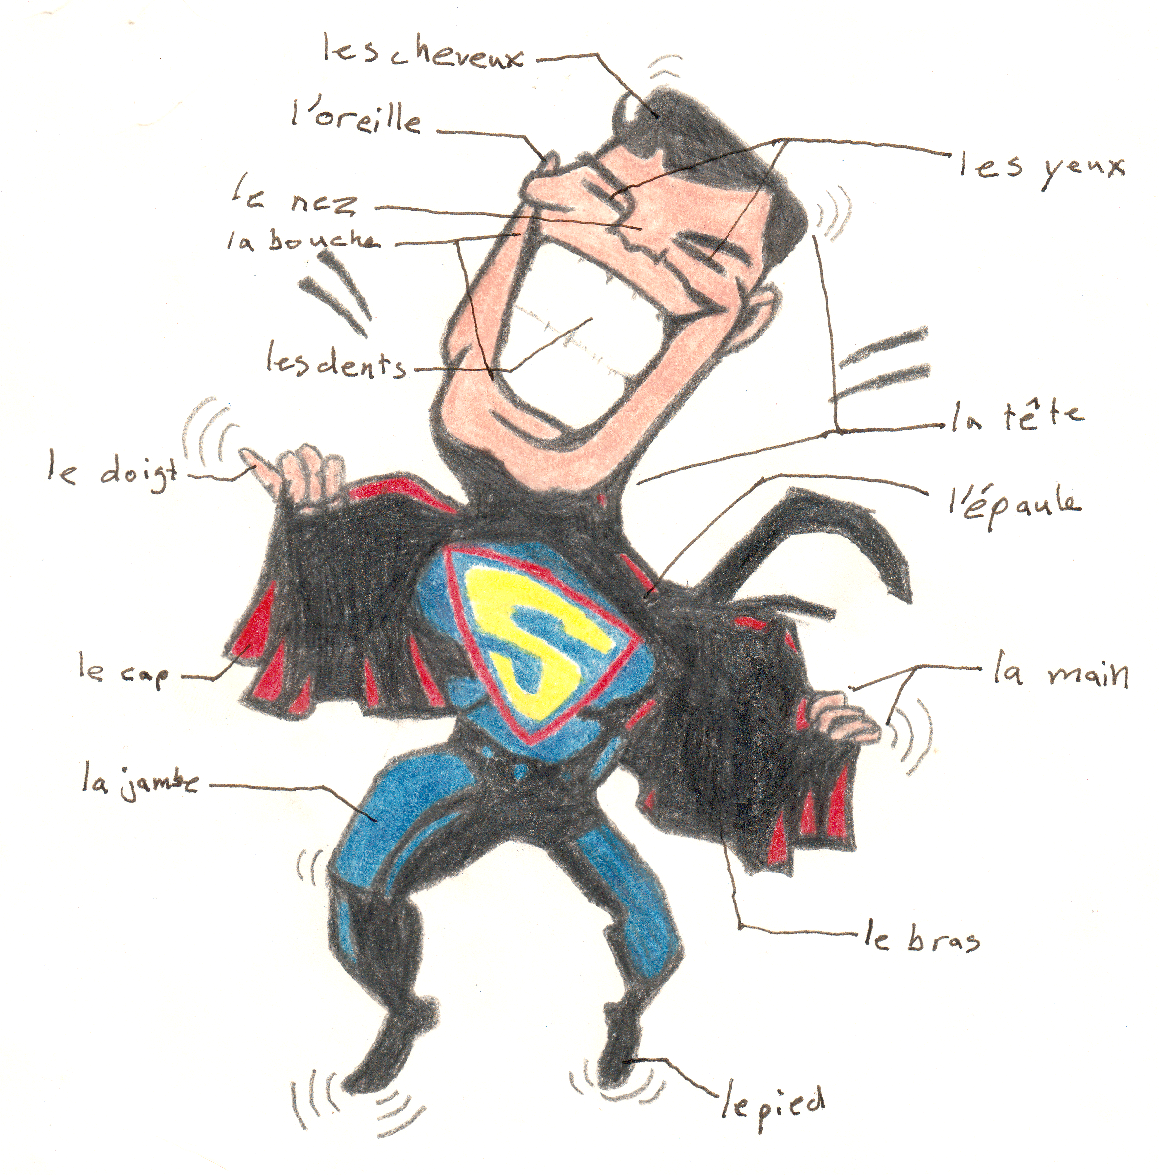 les cheveux
l'oreille
les yeux
le nez
la bouche
les dents
la tête
le doigt
l'épaule
S
le cap
la main
la jambe
le bras
le pied